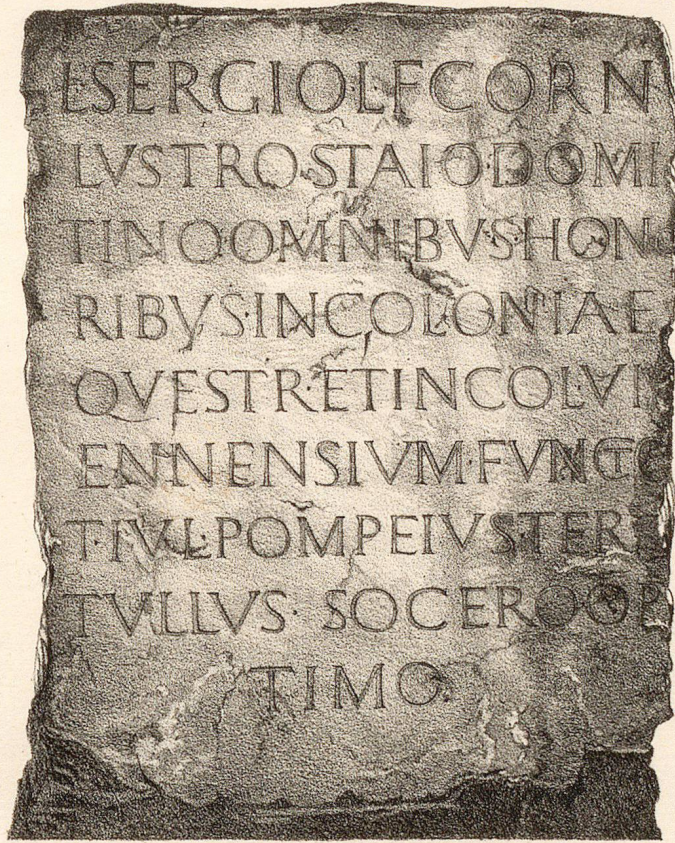 L·SERGIO·L·F·CORN·
LVSTROSTAIO·DOMI
TINO·OMNIBVS·HONO
RIBVS·IN·COLONIA E
QVESTR·ET·IN·COL·VI
ENNENSIVM·FVNCTO
T·IVL·POMPEIVS·TERT
TVLLVS· SOCERO·OP
TIMO·